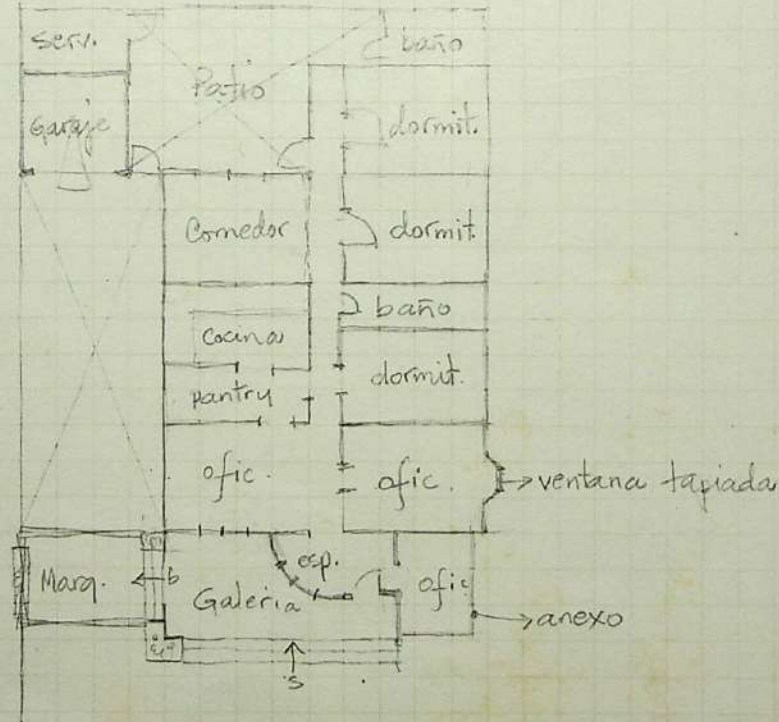 serv.
baño
Patio
Garaje
dormit.
Comedor
dormit.
baño
Cocina
pantry
dormit.
ofic.
ofic.
ventana tapiada
esp.
Marq.
b
Galeria
ofic
anexo
s